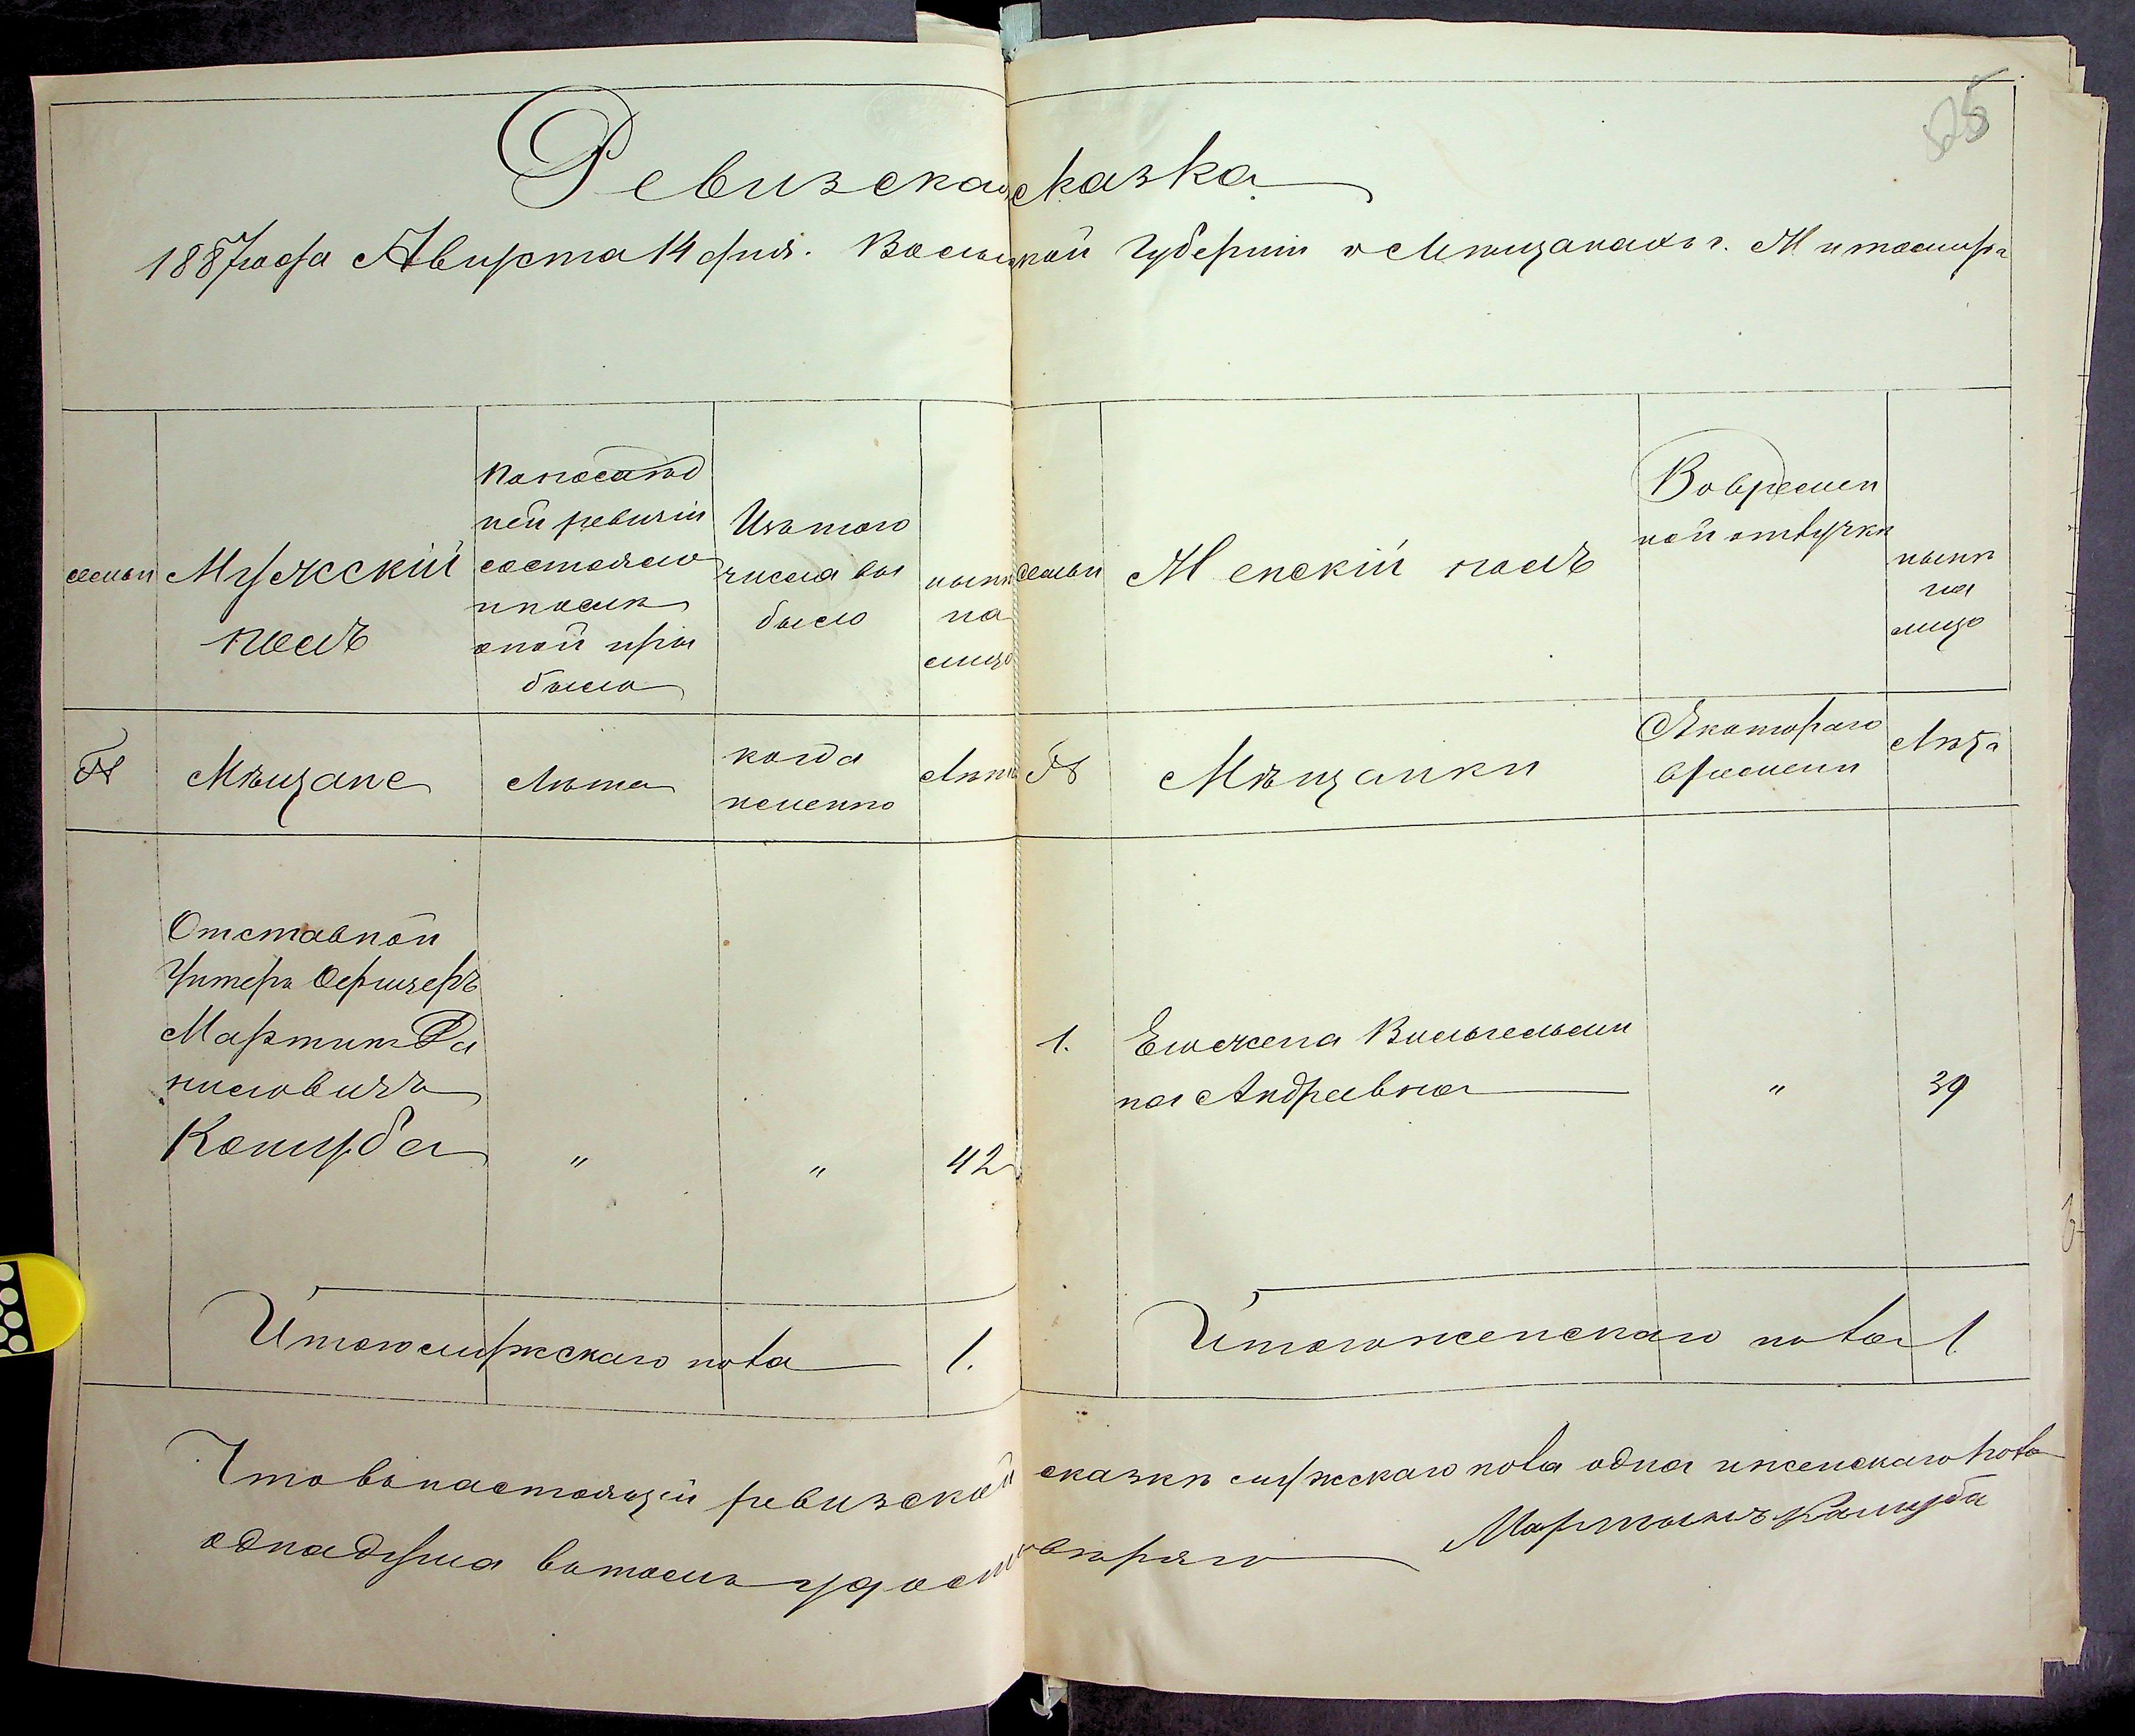 525
Ревизская сказка
1887 года Августа 14 дня. Волынской Губернiи о Мѣщанахъ г. Житомира
семьи
Мужскiй
полъ
По послѣд
ней ревизiи
состояло
и послѣ
оной при
было
Изъ того
числа вы
было
нынѣ
на
лицо
семьи
Женскiй полъ
Во времен
ной отлучкѣ
нынѣ
на
лицо
№
Мѣщане
Лѣта
когда
именно
Лѣта
№
Мѣщанки
Съ котораго
времени
Лѣта
Отставной
Унтеръ Офицеръ
Мартинъ Да
ниловичъ
Коцюба " " 42
1. Его жена Вильгельми
на Андреевна " 39
Итого мужскаго пола 1.
Итого женскаго пола 1
Что въ настоящей ревизской сказкѣ мужскаго пола одна и женскаго пола
одна душа въ томъ удостовѣряю
Мартынъ Коцюба